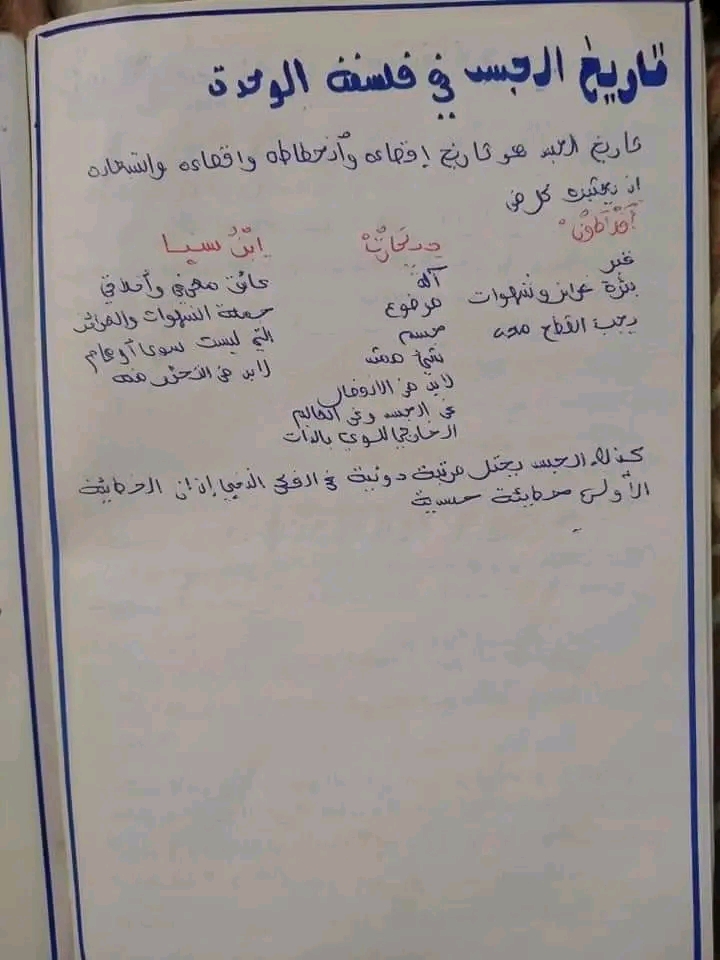 تاريخ الجسد في فلسفة الوحدة
تاريخ الجسد هو تاريخ إقصاءه وانحطاطه واقصاءه واستبعاده
اذ يعتبره كل من
أفلاطون
قبر
بؤرة غرائز وشهوات
يجب القطع معه
ديكارت
آلة
موضوع
مجسم
شيء ممتد
لابد من الانفصال
عن الجسد وعن العالم
الخارجي للوعي بالذات
ابن سينا
عائق معرفي وأخلاقي
جملة الشهوات والغرائز
التي ليست سوى أوهام
لابد من التحرر منه
كذلك الجسد يحتل مرتبة دونية في الفكر الديني إذ ان الخطيئة
الأولى خطيئة حسية